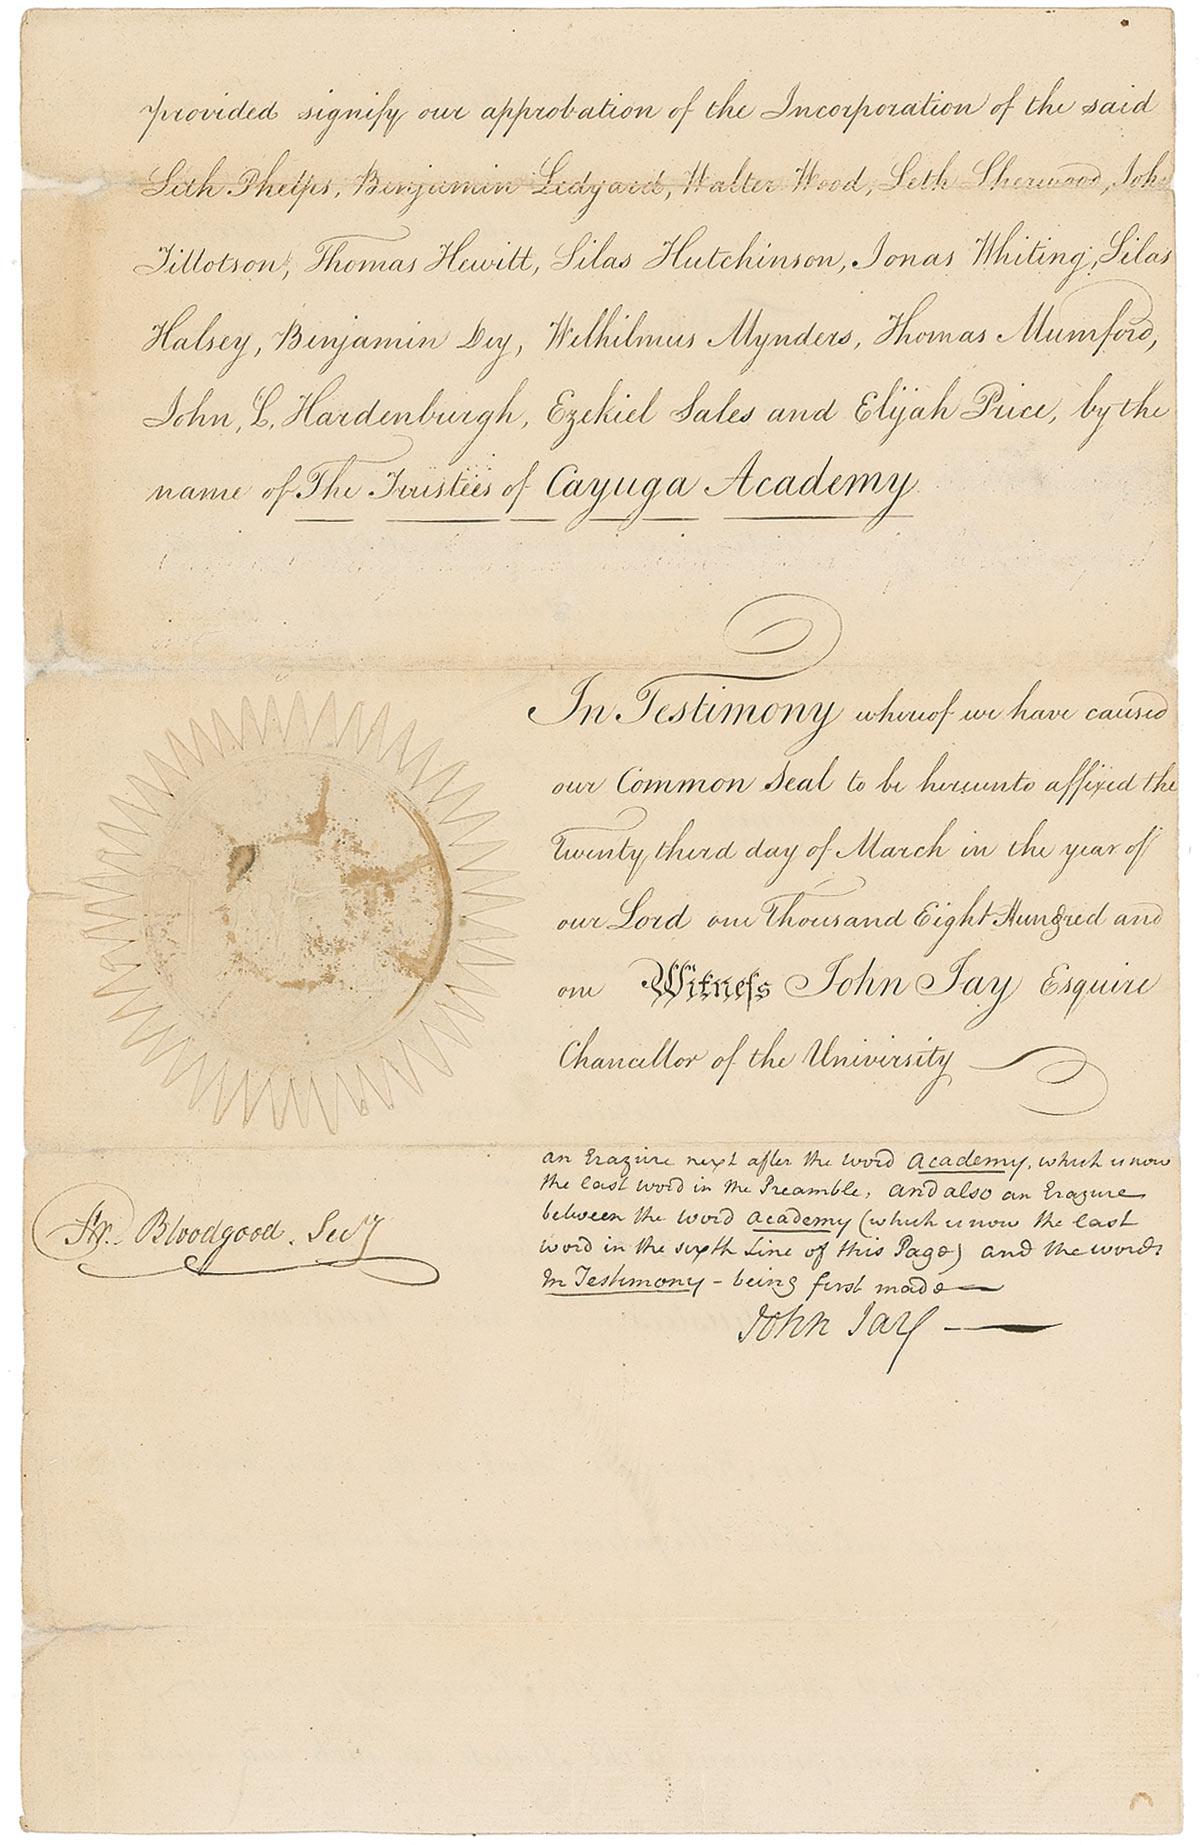 provided signify our approbation of the Incorporation of the said
Seth Phelps, Benjamin Ledyard, Walter Wood, Seth Sherwood, John
Tillotson, Thomas Hewitt, Silas Hutchinson, Jonas Whiting, Silas
Halsey, Benjamin Dey, Wilhilmus Mynders, Thomas Mumford,
John, L, Hardenburgh, Ezekiel Sales and Elijah Price, by the
name of The Trustees of Cayuga Academy
In Testimony whereof we have caused
our Common Seal to be hereunto affixed the
Twenty third day of March in the year of
our Lord one Thousand Eight Hundred and
one Witness John Jay Esquire
Chancellor of the University
an Erazure next after the word Academy, which is now
the last word in the Preamble, and also an Erazure
between the word Academy (which is now the last
word in the sixth Line of this Page) and the words
In Testimony - being first made —
John Jay —
Bloodgood. Secy